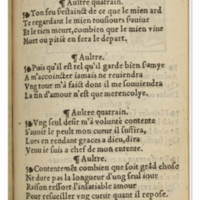 ¶ Aultre quatrain.
Ton feu s'estainct de ce que le mien ard
Te regardant le mien tousiours s'auiue
Et le tien meurt, combien que le mient viue
Nort ou pitié en fera le depart.
¶ Aultre.
Puis qu'il est tel qu'il garde bien s'amye
A m'accointer iamais ne reuiendra
Vng tour m'a faict dont il me souuiendra
La fin d'amour n'est que merencolye.
¶ Aultre quatrain.
Vng seul desir m'a voluntė contente
S'auoir le peult mon cueur il suffira,
Lors en rendant graces a dieu, dira
Venir ie suis a chef de mon entente.
¶ Aultre.
Contentemēt combien que soit grād chose
Ne dure pas la longueur d'vng seul iour
Raison ressort l'insatiable amour
Peult ressueiller vng cueur quant il repose.